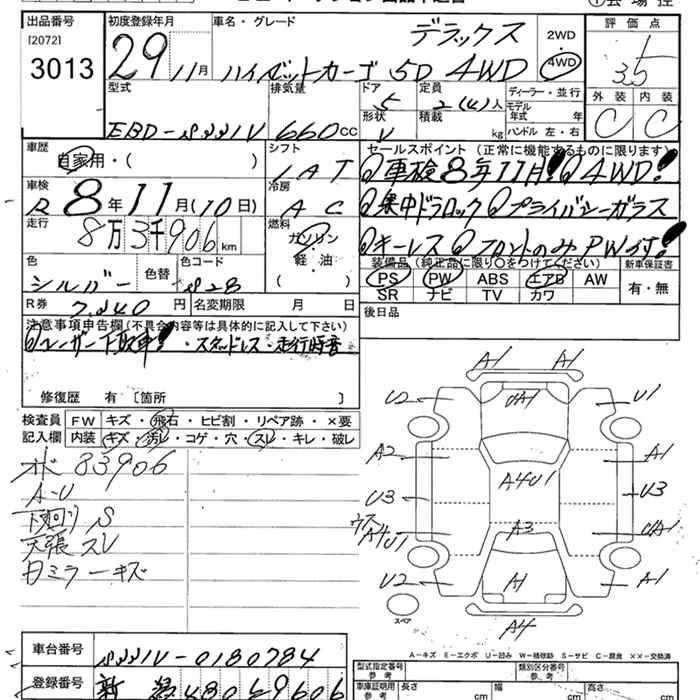 出品番号 初度登録年月 車名・グレード 評価点
[2072] 3013 29 11月 ハイゼットカーゴ 5D 4WD デラックス 2WD 4WD 3.5
型式 排気量 ドア 定員 ディーラー・並行 外装 内装
EBD-S331V 660cc 5 2(4)人 モデル年式 年 C C
形状 V 積載 kg ハンドル 左・右
車歴 シフト セールスポイント (正常に機能するものに限ります)
自家用・( ) IAT 車検8年11月! 4WD!
車検 冷房 集中ドアロック プライバシーガラス
R 8年11月(10日) AC キーレス フロントのみPWです!
走行 燃料
8万3千906km ガソリン 軽・油 ( )
装備品 (純正品に限り○をつけてください) 新車保証書
PS PW ABS エアB AW 有・無
SR ナビ TV カワ
色 色替 色コード
シルバー S28
R券 7,240円 名変期限 月 日
後日品
注意事項申告欄 (不具合内容等は具体的に記入して下さい)
ユーザー下取車! ・スタッドレス・走行時音
修復歴 有 〔箇所 〕
検査員記入欄 FW キズ・飛石・ヒビ割・リペア跡・×要
内装 キズ・汚レ・コゲ・穴・スレ・キレ・破レ
83906
A-U
下回り S
天張 スレ
ミラーキズ
A1 A1
U2 UA1 U1
A2 A1
A4U1
U3 U3
ウス A4U1 A3 UA1
U2 A1 A1
A4
スペア
A-キズ E-エクボ U-凹み W-補修跡 S-サビ C-腐食 ××-交換済
車台番号 S331V-0180784
登録番号 480 9606
型式指定番号 参考 類別区分番号 参考
車庫証明用 参考 長さ cm 幅 cm 高さ cm